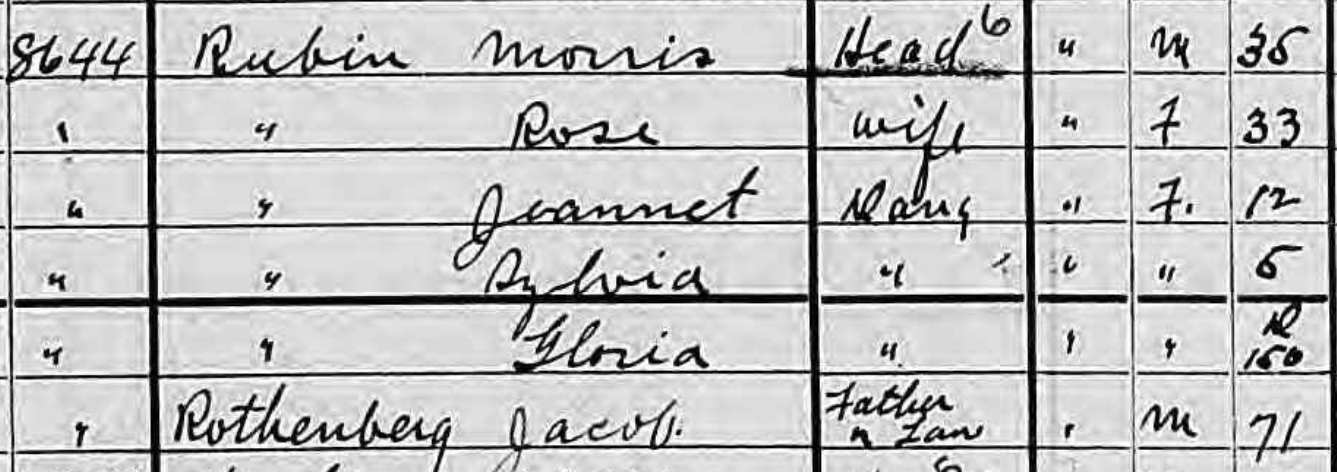 8644 Rubin Morris Head 6 " M 35
" " Rose wife " F 33
" " Jeannet Daug " F. 12
" " Sylvia " " " 5
" " Gloria " " " D
" Rothenberg Jacob. Father n Law " M 71